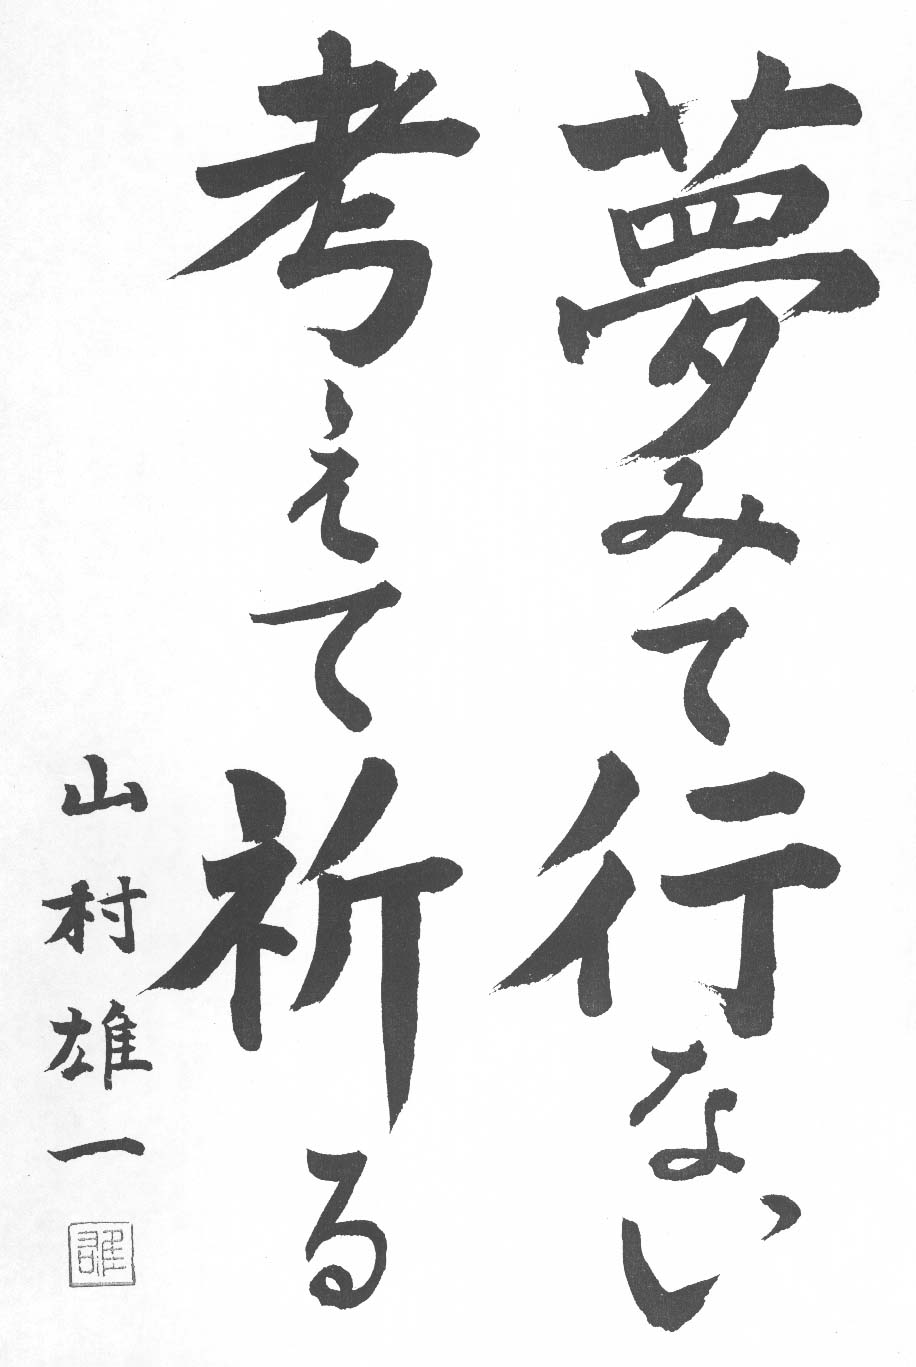 夢みて行ない
考えて祈る
山村雄一